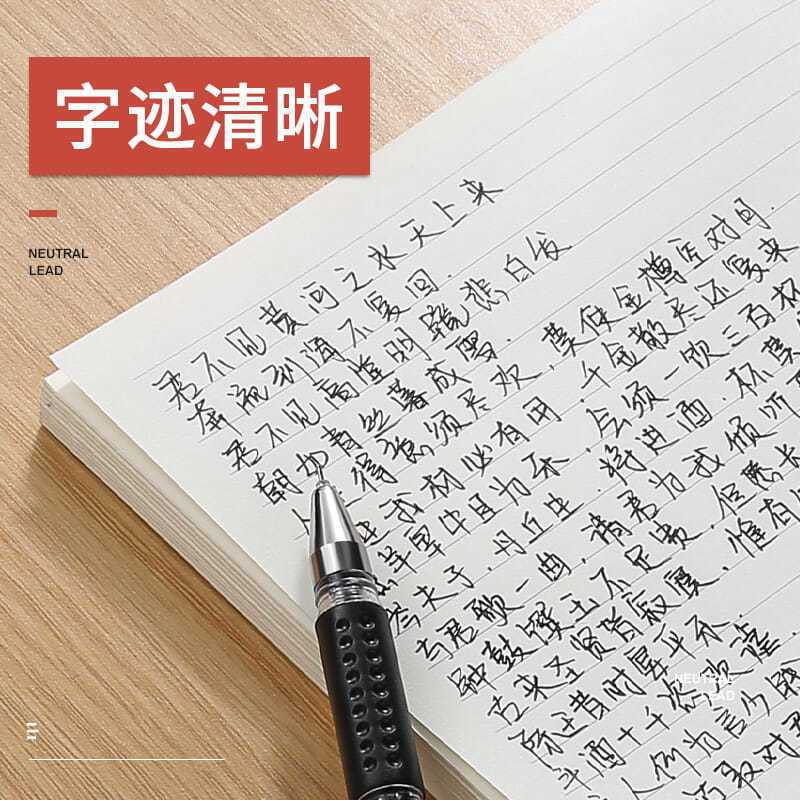 字迹清晰
NEUTRAL
LEAD
君不见黄河之水天上来
奔流到海不复回.
君不见高堂明镜悲白发
朝如青丝暮成雪.
得意须尽欢,莫使金樽空对月.
我材必有用.千金散尽还复来
羊宰牛且为乐,会须一饮三百杯
岑夫子.丹丘生.将进酒.杯莫
与君歌一曲,请君为我倾
钟鼓馔玉不足贵,但愿长
古来圣贤皆寂寞,惟有
陈王昔时宴平乐.
斗酒十千恣欢谑.
主人何为言少
NEUTRAL
LEAD